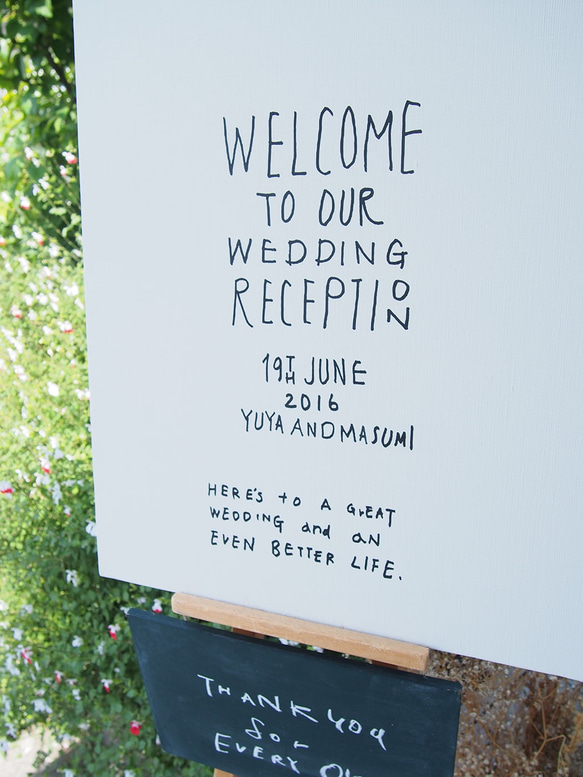 WELCOME
TO OUR
WEDDING
RECEPTION
19TH JUNE
2016
YUYA AND MASUMI
HERE'S to A GrEAT
WEDDING and aN
EVEN BETTER LIFE.
THANK YOU
for
EVERY